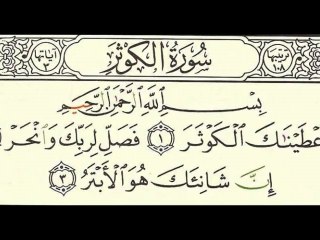 ترتيبها ١٠٨ سُورَةُ الكَوْثَرِ آياتها ٣
بِسْمِ ٱللَّهِ ٱلرَّحْمَٰنِ ٱلرَّحِيمِ
عْطَيْنَٰكَ ٱلْكَوْثَرَ ١ فَصَلِّ لِرَبِّكَ وَٱنْحَرْ
إِنَّ شَانِئَكَ هُوَ ٱلْأَبْتَرُ ٣